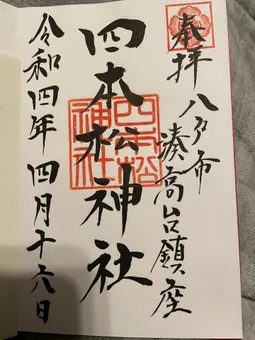 奉拝
八戸市
湊高台鎮座
四本松神社
四本松神社
令和四年四月十六日